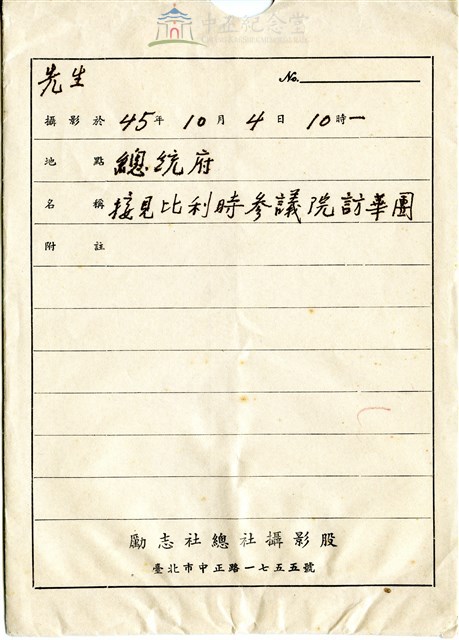 中正紀念堂
先生 No.
攝影於 45年 10月 4日 10時
地點 總統府
名稱 接見比利時參議院訪華團
附註
勵志社總社攝影股
臺北市中正路一七五五號